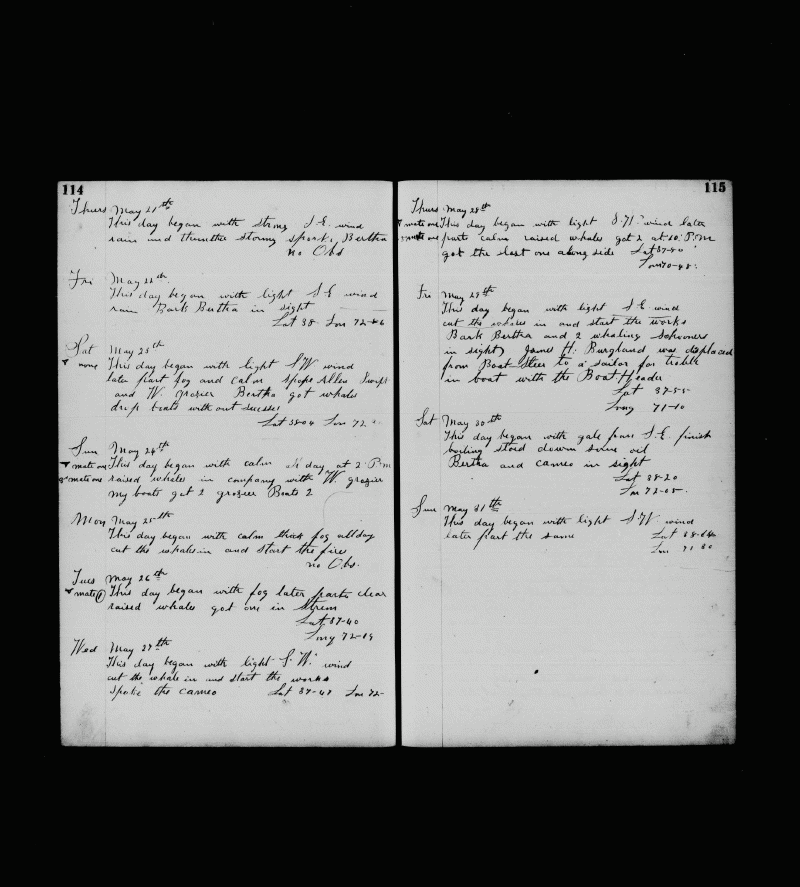 114
Thurs May 21th
This day began with strong S.E. wind
rain and thunder storm spoke Bertha
no Obs
Fri May 22th
This day began with light S E wind
rain Bark Bertha in sight
Lat 38 Lon 72-46
Sat May 23th
none This day began with light S W wind
later part fog and calm spoke Allen
and W. grozier Bertha got whales
drop boats without success
Lat 38-04 Lon 72
Sun May 24th
mate one This day began with calm day at 2 P.m
mate one raised whales in company with W grozier
my boats got 2 grozier Boats 2
Mon May 25th
This day began with calm thick fog all day
cut the whale in and start the fires
no Obs.
Tues May 26th
mate 1 This day began with fog later parts clear
raised whales got one in
Lat. 37-40
Long 72-19
Wed May 27th
This day began with light S. W. wind
cut the whale in and start the works
spoke the cameo Lat 37-48 Lon 72-
115
Thurs May 28th
mate one This day began with light wind later
mate one parts calm raised whales got 2 at 10 P.M
got the last one along side Lat 37-50
Lon 70-48
Fri May 29th
This day began with light S E wind
cut the whales in and start the works
Bark Bertha and 2 whaling Schooners
in sight James H. Burgland was displaced
from Boat Steer to a sailor for trouble
in boat with the Boat Header
Lat 37-55
Long 71-10
Sat May 30th
This day began with gale from S.E. finish
boiling stoed down some oil
Bertha and cameo in sight
Lat 38-20
Lon 72-05
Sun May 31th
This day began with light S.W. wind
later part the same Lat 38-
Lon 71 30